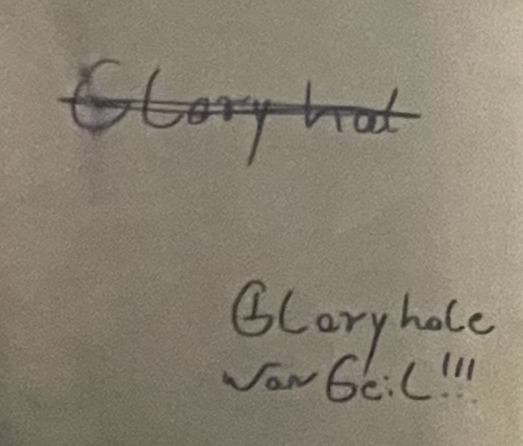 Glory hat
Gloryhole
war Geil!!!